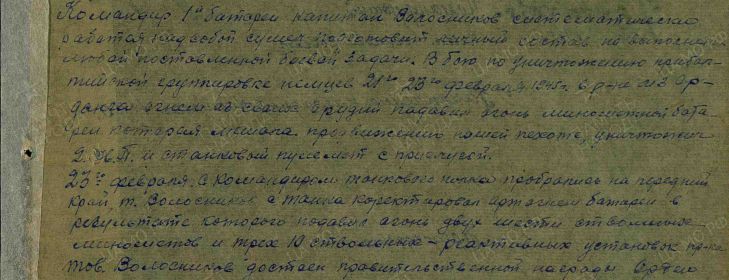 Командир 1й батареи капитан Волосников систематически
работая над собой сумел подготовить личный состав на выполнение
любой поставленной боевой задачи. В бою по уничтожению прибал-
тийской группировке немцев 21го 23го февраля 1945г. в р-не
огнем из своих орудий подавил огонь минометной бата-
реи которая мешала продвижению нашей пехоте, уничтожил
2 и станковый пулемет с прислугой.
23го февраля с командиром танкового полка пробрались на передний
край, т. Волосников с танка коректировал артогнем батареи в
результате которого подавил огонь двух шести ствольных
минометов и трех 10 ствольных – реактивных установок пр-ка
тов. Волосников достоен правительственной награды Орден